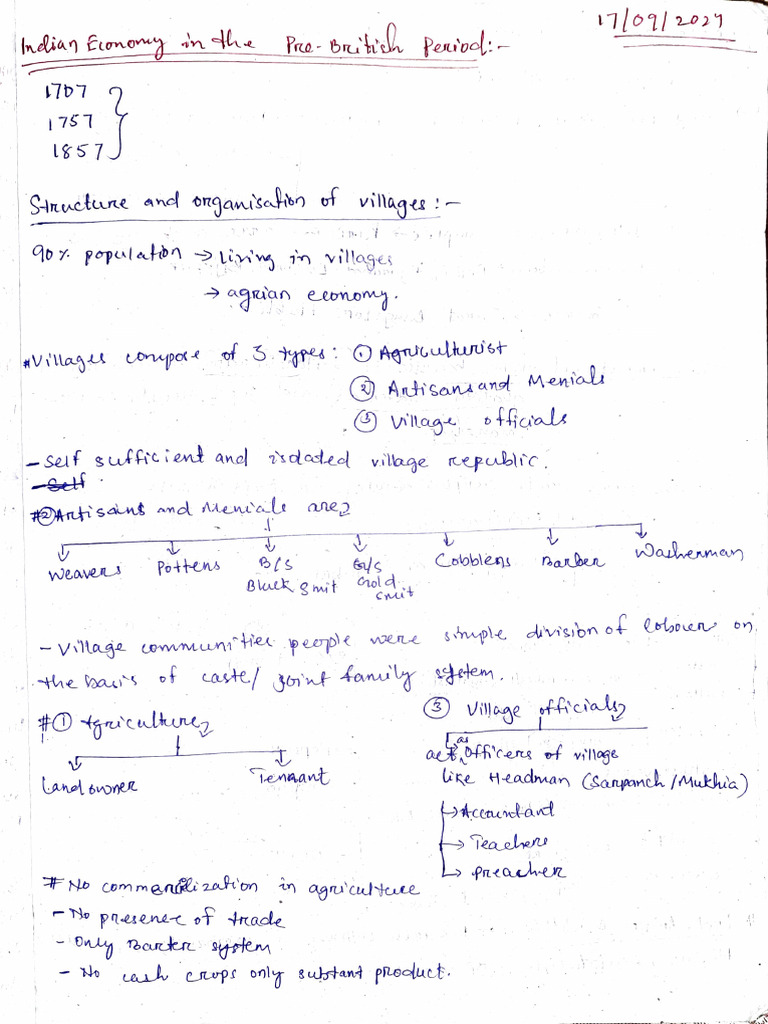 17/09/2024
Indian Economy in the Pre-British Period:-
1707
1757
1857
Structure and organisation of villages:-
90% population → living in villages
→ agrian economy.
#Villages compose of 3 types: ① Agriculturist
② Artisans and Menials
③ Village officials
- Self sufficient and isolated village republic.
- Self
#② Artisans and Menials are
Weavers Potters B/S Black Smit G/S Gold Smit Cobblers Barber Washerman
- Village communities people were simple division of labour on
the basis of caste/ joint family system.
#① Agriculture
Landowner Tennant
③ Village officials
act as officers of village
like Headman (Sarpanch/Mukhia)
→ Accountant
→ Teachers
→ preacher
# No commercilization in agriculture
- No presence of trade
- Only Barter system
- No cash crops only substant product.